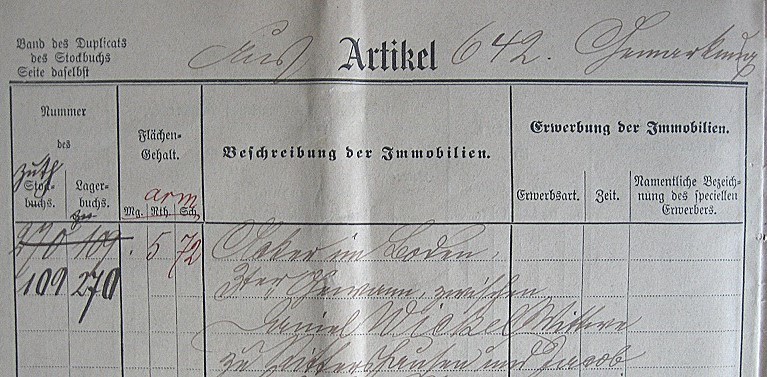 Band des Duplicats
des Stockbuchs
Seite daselbst
Aus Artikel 642. Gemarkung
Nummer
des
Stock-
buchs.
Lager-
buchs.
Flächen-
Gehalt.
ar m
Mg. Rth. Sch.
Beschreibung der Immobilien.
Erwerbung der Immobilien.
Erwerbsart.
Zeit.
Namentliche Bezeich-
nung des speciellen
Erwerbers.
270 109 5 72 Acker im Boden,
109 270 3ter Gewann, zwischen
Daniel Wickel Wittwe
zu und Jacob